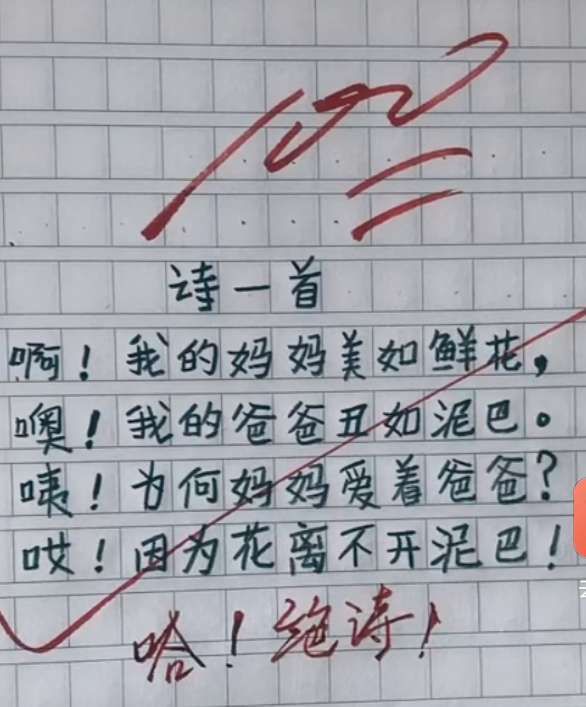 100
诗一首
啊！我的妈妈美如鲜花，
噢！我的爸爸丑如泥巴。
咦！为何妈妈爱着爸爸？
哎！因为花离不开泥巴！
哈！绝诗！